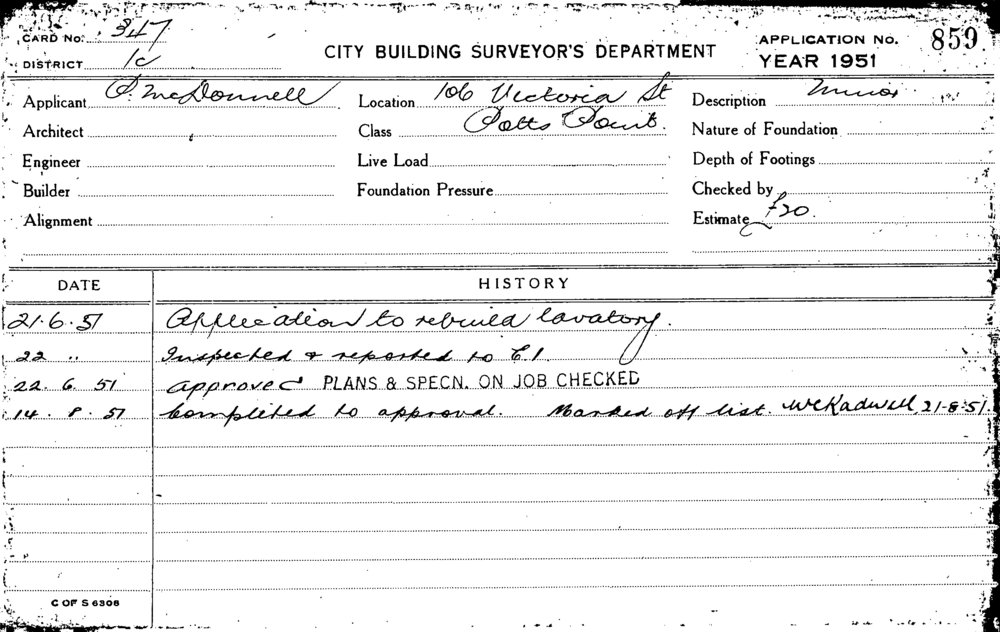 CARD No. 347
DISTRICT 1c
CITY BUILDING SURVEYOR'S DEPARTMENT
APPLICATION No. 859
YEAR 1951
Applicant P. McDonnell Location 106 Victoria St Description Minor
Architect Class Potts Point. Nature of Foundation
Engineer Live Load Depth of Footings
Builder Foundation Pressure Checked by
Alignment Estimate £20.
DATE HISTORY
21.6.51 Application to rebuild lavatory.
22 " Inspected & reported to C.I.
22. 6. 51 approved PLANS & SPECN. ON JOB CHECKED
14. 8. 51 Completed to approval. Marked off list. 21-8-51.
C OF S 6306